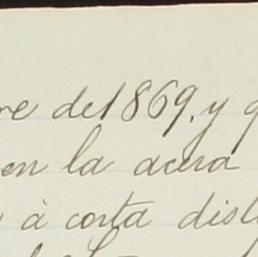 re del 1869, y q
en la acera
à corta dist